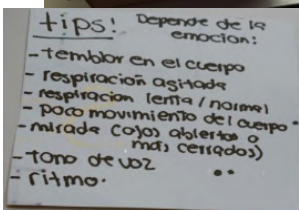 tips! Depende de la
emocion:
- temblor en el cuerpo
- respiración agitada
- respiracion lenta / normal
- poco movimiento del cuerpo
- mirada (ojos abiertos o
más cerrados)
- tono de voz
- ritmo.